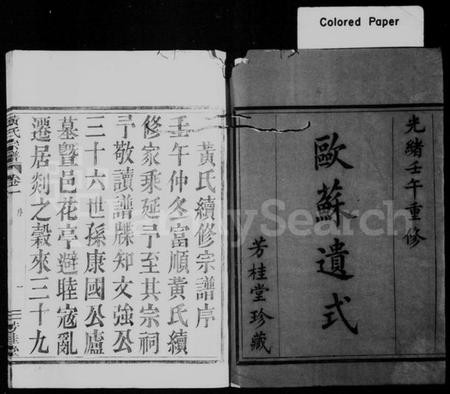 Colored Paper
光緒壬午重修
歐蘇遺式
芳桂堂珍藏
黃氏續修宗譜序
壬午仲冬富順黃氏續
修家乘延予至其宗祠
予敬讀譜牒知文強公
三十六世孫康國公廬
墓暨邑花亭避睦寇亂
遷居剡之穀來三十九